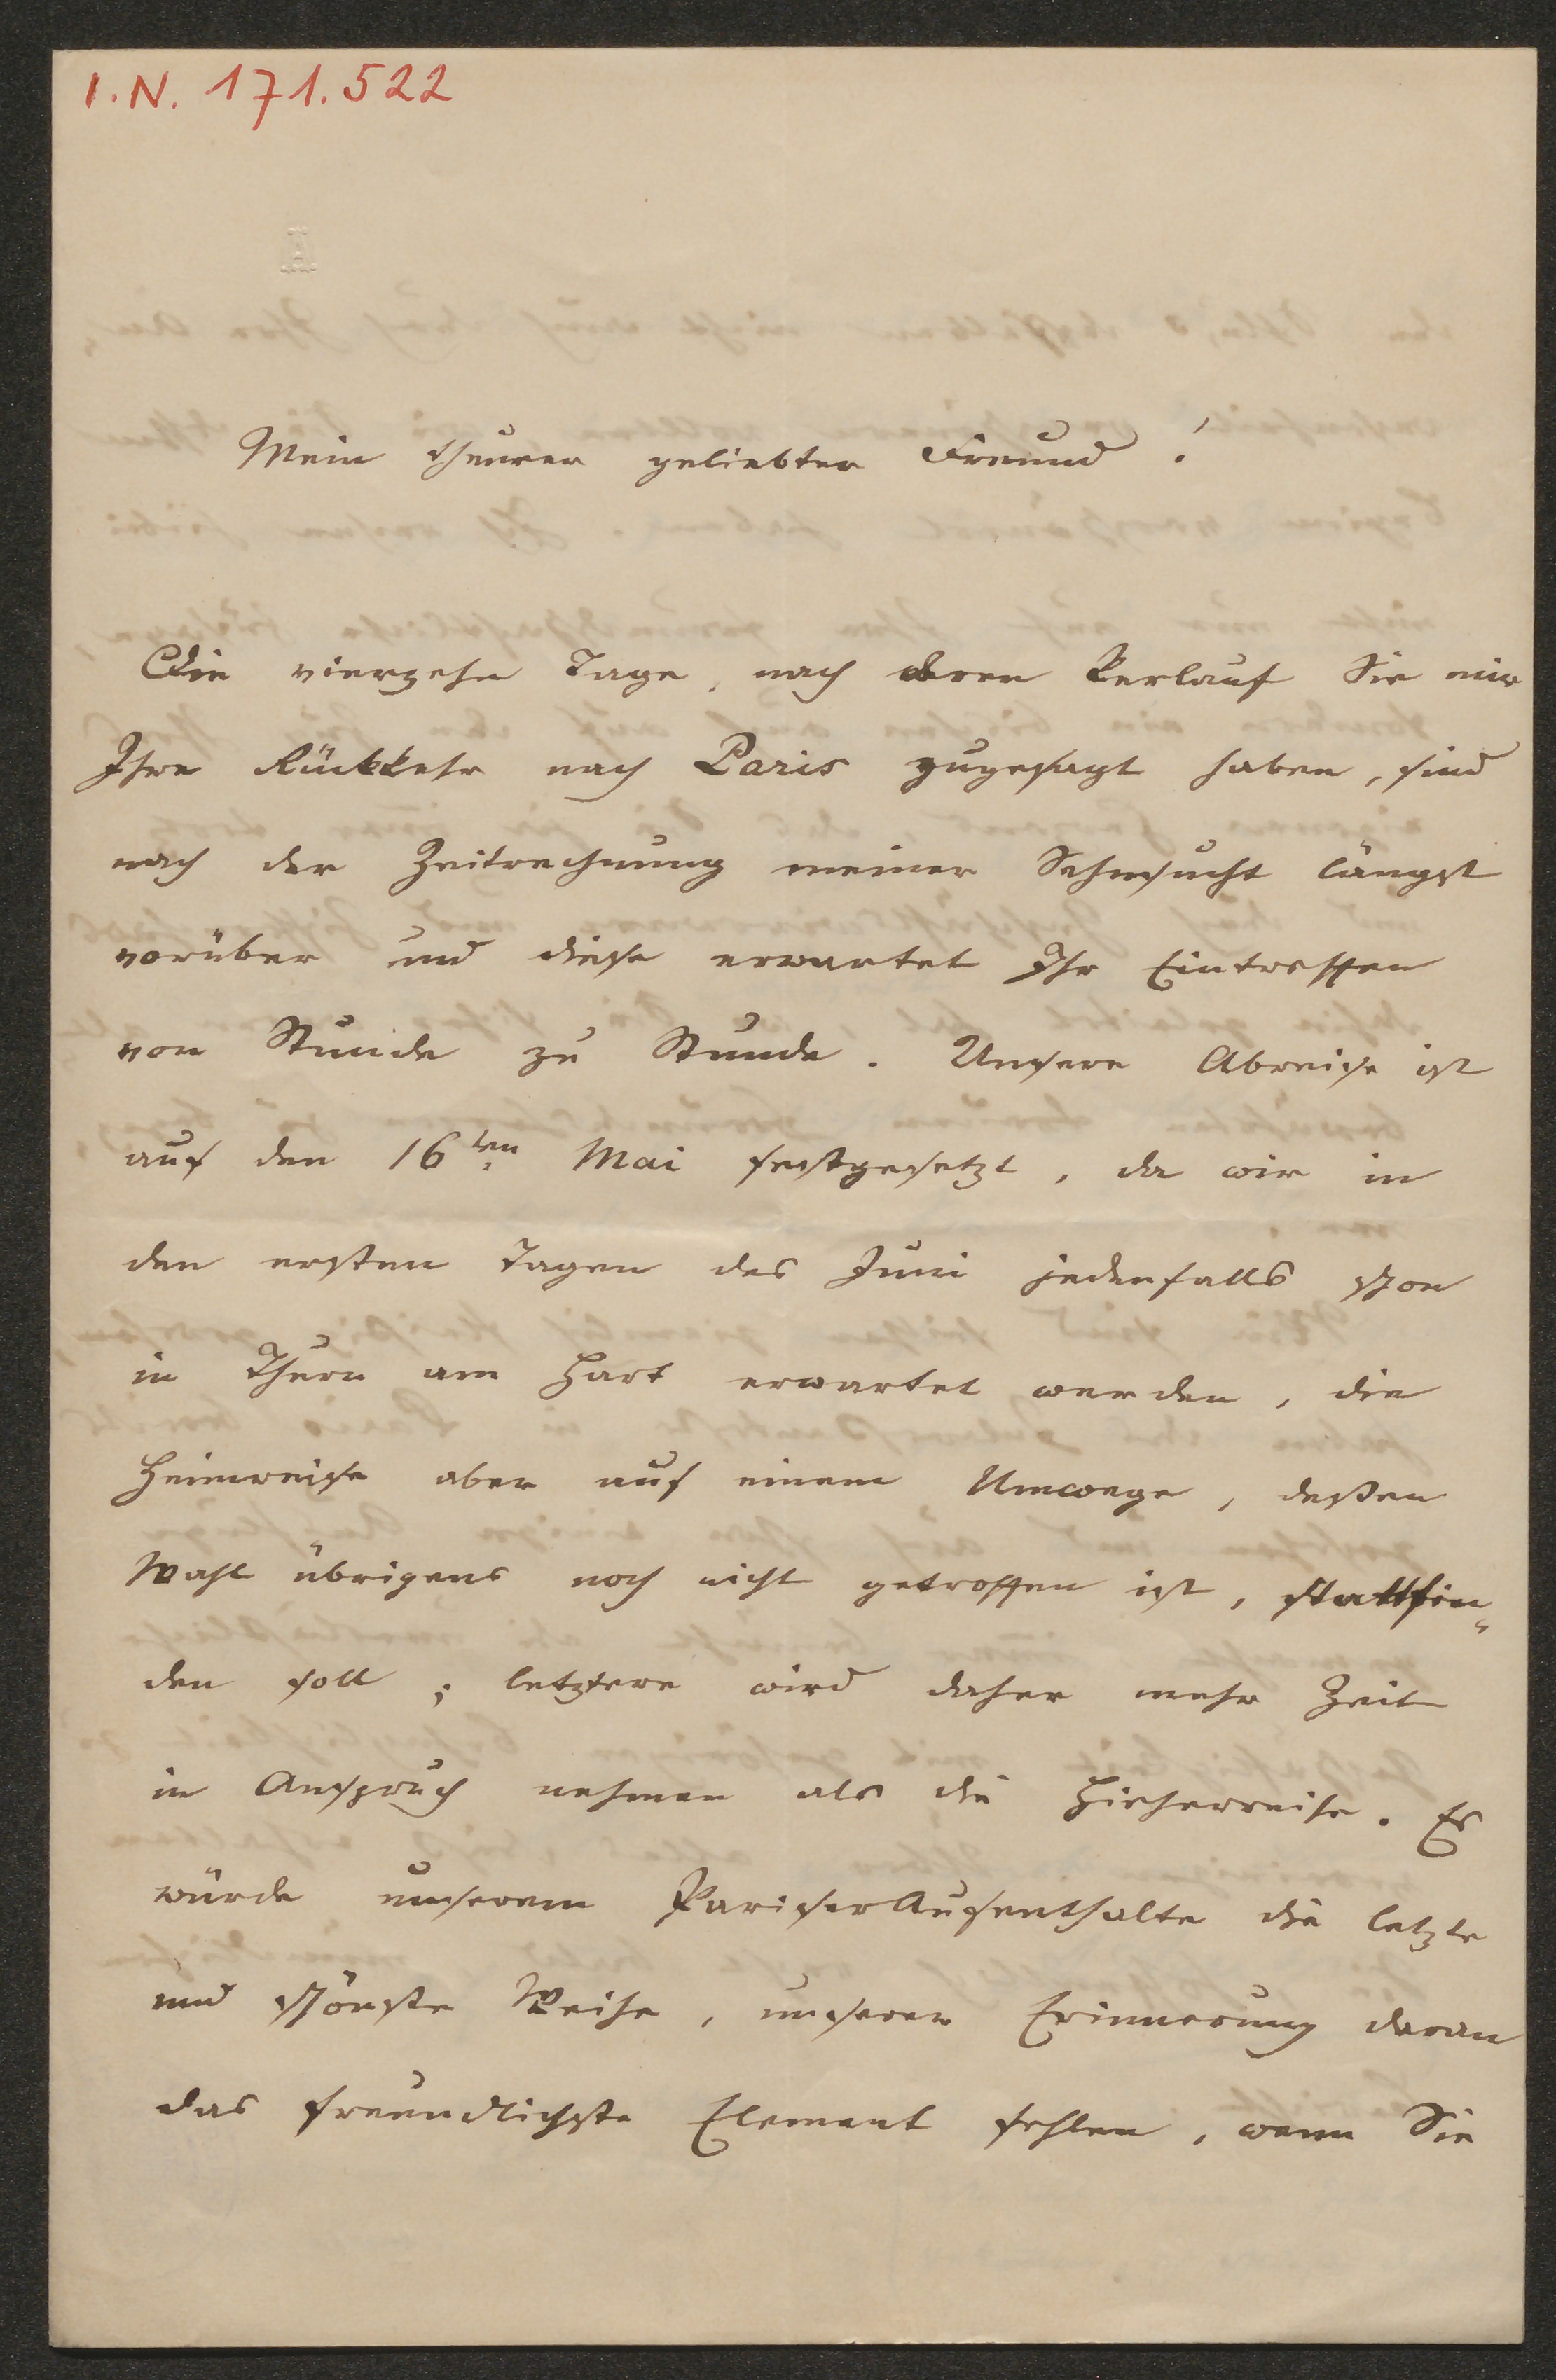 I.N. 171.522
Mein theurer geliebter Freund!
Die vierzehn Tage, nach deren Verlauf Sie mir
Ihre Rückkehr nach Paris zugesagt haben, sind
nach der Zeitrechnung meiner Sehnsucht längst
vorüber und diese erwartet Ihr Eintreffen
von Stunde zu Stunde. Unsere Abreise ist
auf den 16ten Mai festgesetzt, da wir in
den ersten Tagen des Juni jedenfalls schon
in Thurn am Hart erwartet werden, die
Heimreise aber auf einem Umwege, deßen
Wahl übrigens noch nicht getroffen ist, stattfin„
den soll; letztere wird daher mehr Zeit
in Anspruch nehmen als die Hieherreise. Es
würde unserem Pariser Aufenthalte die letzte
und schönste Weihe, unserer Erinnerung daran
das freundlichste Element fehlen, wenn Sie